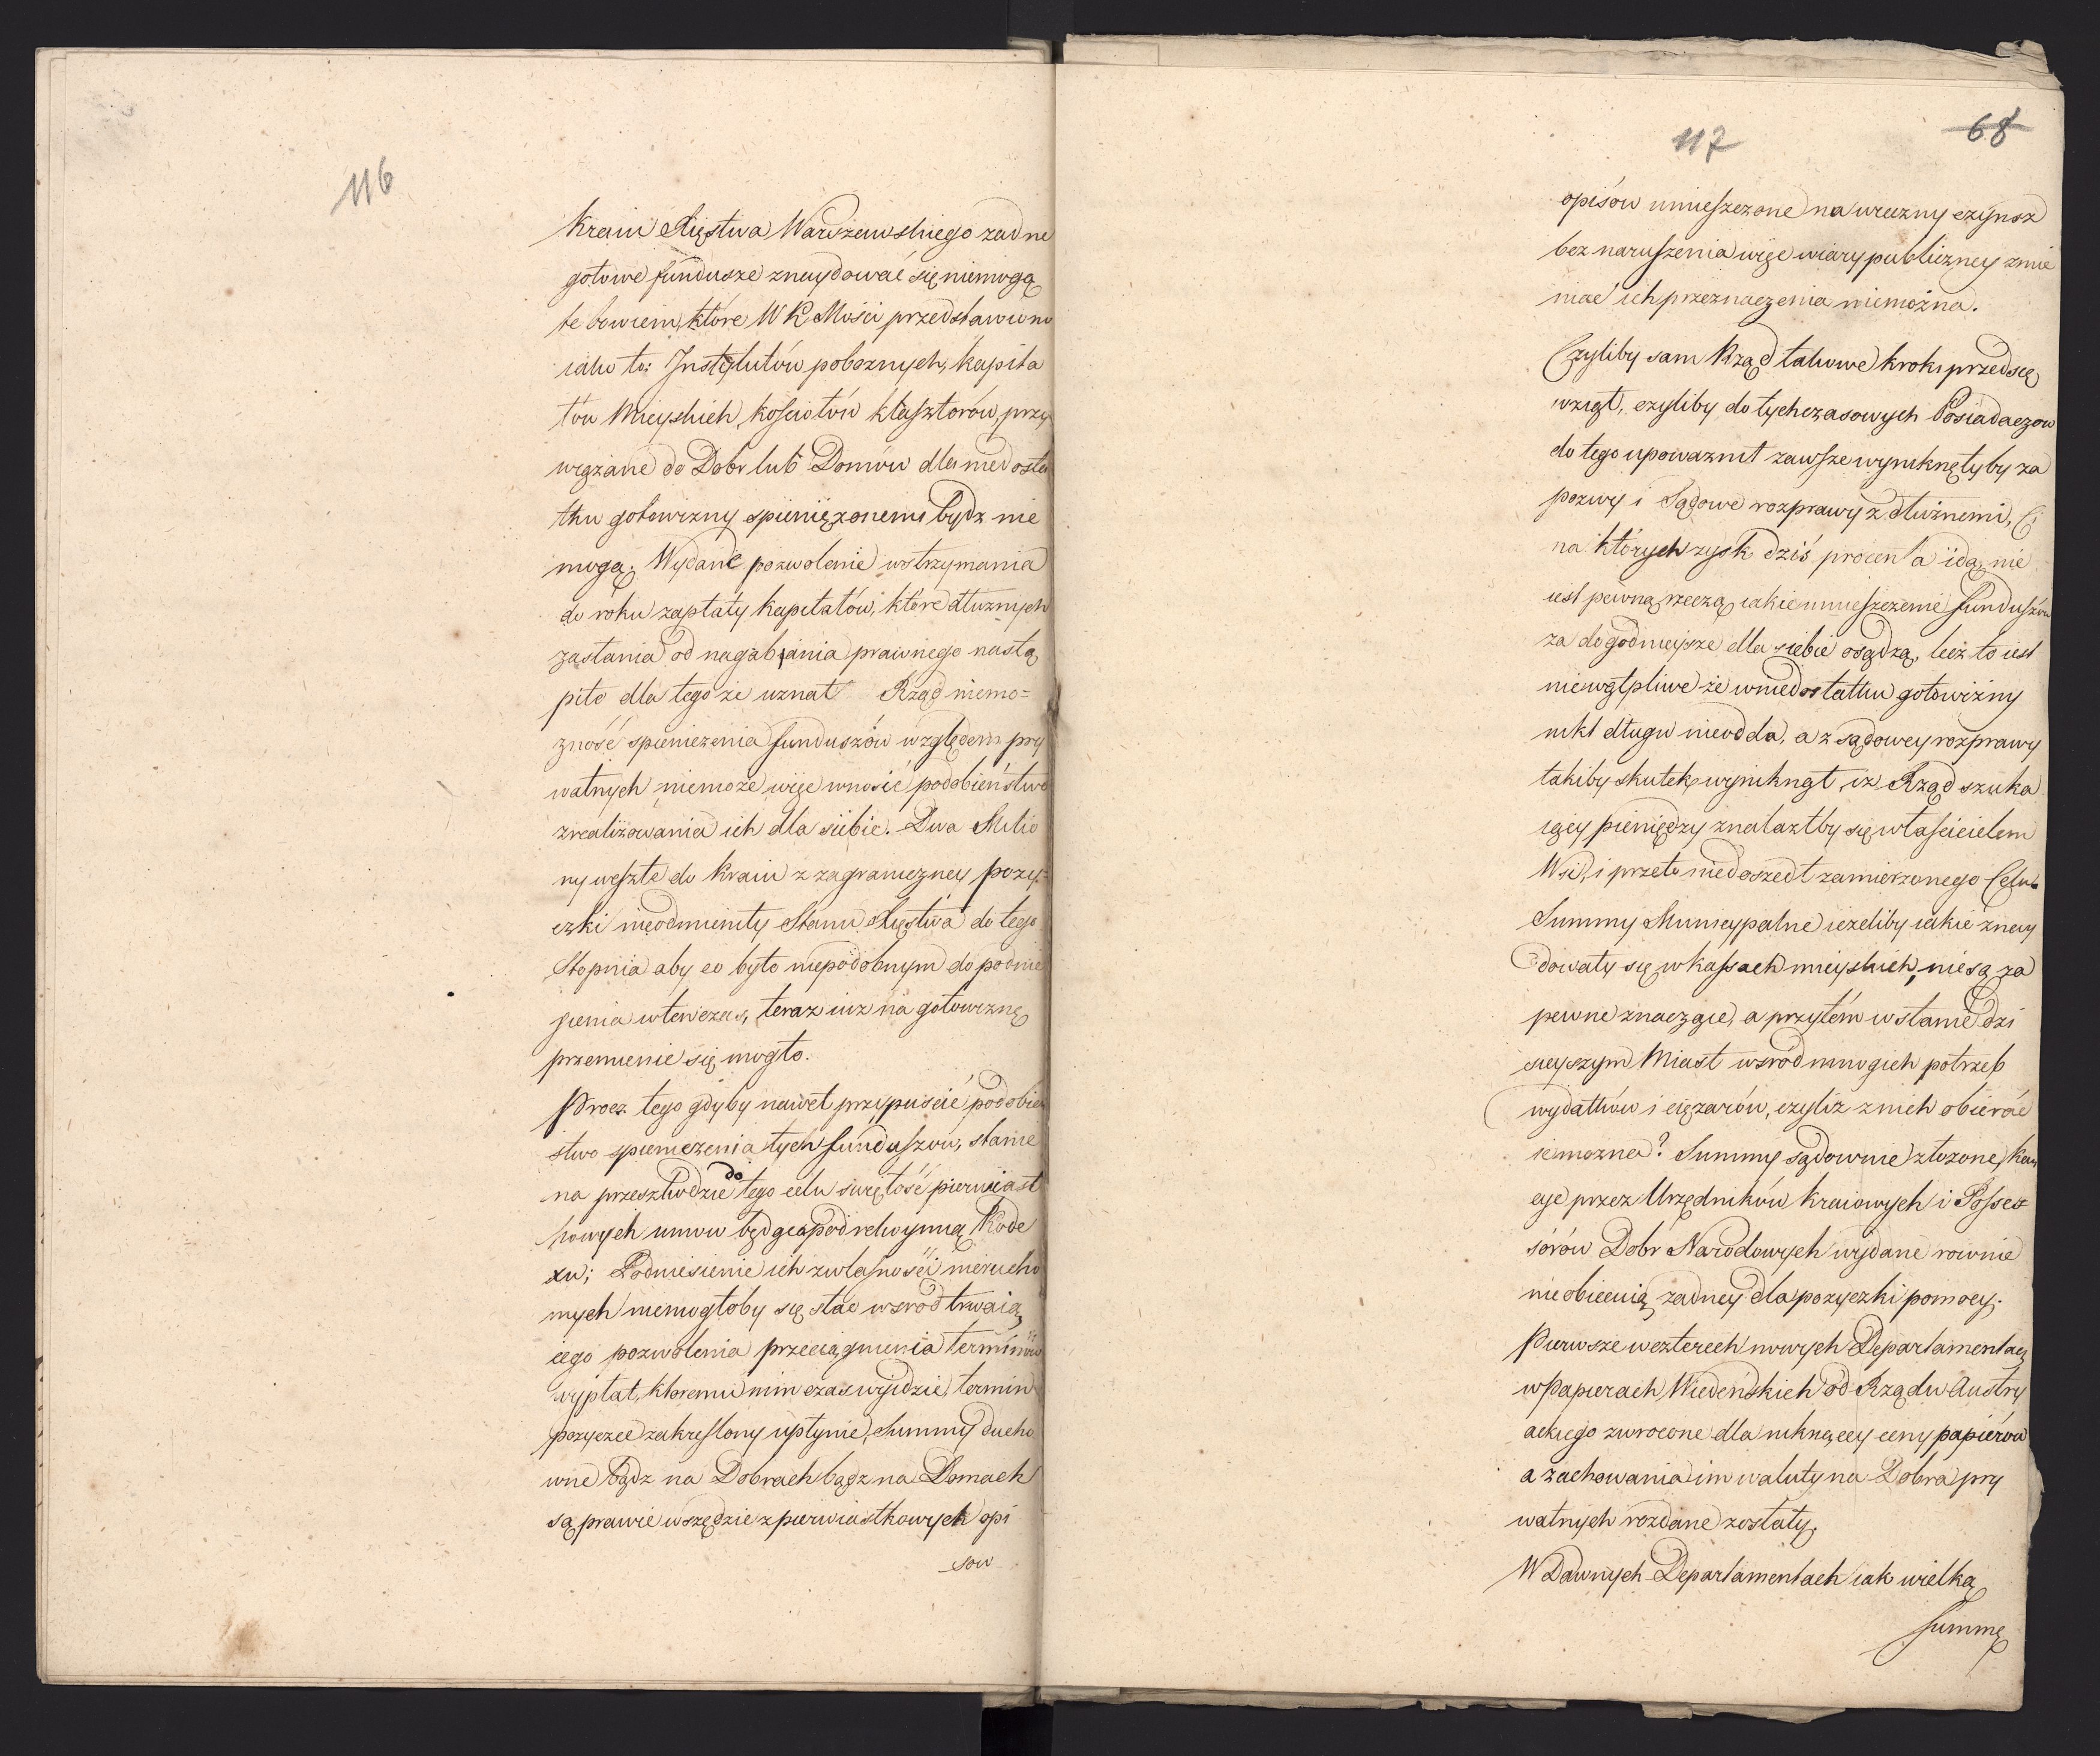 116
kraiu Xięstwa Warszawskiego żadne
gotowe fundusze znaydować się niemogą
te bowiem, które W K Mości przedstawiono
iako to: Instytutów pobożnych, kapita
łów Mieyskich, kościołów klasztorów, przy
wiązane do Dobr lub Domów dla niedosta
tku gotowizny spieniężonemi bydz nie
mogą. Wydane pozwolenie wstrzymania
do roku zapłaty kapitałów, które dłużnych
zasłania od nagabiania prawnego nastą
piło dla tego że uznał Rząd niemo=
żność spieniężenia funduszów względem pry
watnych niemoże więc wnosić podobieństwo
zrealizowania ich dla siebie. Dwa Milio
ny weszłe do kraiu z zagraniczney pożycz=
czki nieodmieniły Stanu Xięstwa do tego
Stopnia aby co było niepodobnym do podnie
sienia wtenczas, teraz iuż na gotowiznę
przemienić się mogło.
Procz tego gdyby nawet przypuścić podobień
stwo spieniężenia tych funduszów, stanie
na przeszkodzie do tego celu świętość pierwiast
kowych umow będąca pod rekoymią Kode
xu; Podniesienie ich z własności nierucho
mych niemogłoby się stać wsrod trwaią
cego pozwolenia przeciągnienia terminów
wypłat, ktoremu nim czas wyidzie, termin
pożyczce zakreslony upłynie, Summy ducho
wne bądz na Dobrach bądz na Domach
są prawie wszędzie z pierwiastkowych opi
sow
117
68
opisów umieszczone na wieczny czynsz
bez naruszenia więc wiary publiczney zmie
niać ich przeznaczenia niemożna.
Czyliby sam Rząd takowe kroki przedsię
wziął, czyliby dotychczasowych Posiadaczow
do tego upoważnił zawsze wyniknęłyby za
pozwy i Sądowe rozprawy z dłużnemi, Ci
na których zysk dziś procenta idą, nie
iest pewną rzeczą iakie umieszczenie funduszów
za dogodnieysze dla siebie osądzą, lecz to iest
niewątpliwe że w niedostatku gotowizny
nikt długu nieodda, a z sądowey rozprawy
takiby skutek wyniknął, iż Rząd szuka
iący pieniędzy znalazłby się właścicielem
Wsi, i przeto niedoszedł zamierzonego Celu.
Summy Municypalne ieżeliby iakie znay
dowały się w kassach mieyskich, niesą za
pewne znaczące, a przytém w stanie dzi
sieyszym Miast wsrod mnogich potrzeb
wydatków i ciężarów, czyliż z nich obierać
ie można? Summy sądownie złożone, kau
cye przez Urzędników kraiowych i Posses
sorów Dobr Narodowych wydane rownie
nie obiecuią żadney dla pożyczki pomocy.
Pierwsze w czterech nowych Departamentach
w Papierach Wiedeńskich od Rządu Austry
ackiego zwrocone dla niknącey ceny papiérów
a zachowania im waluty na Dobra pry
watnych rozdane zostały.
W Dawnych Departamentach iak wielką
summę